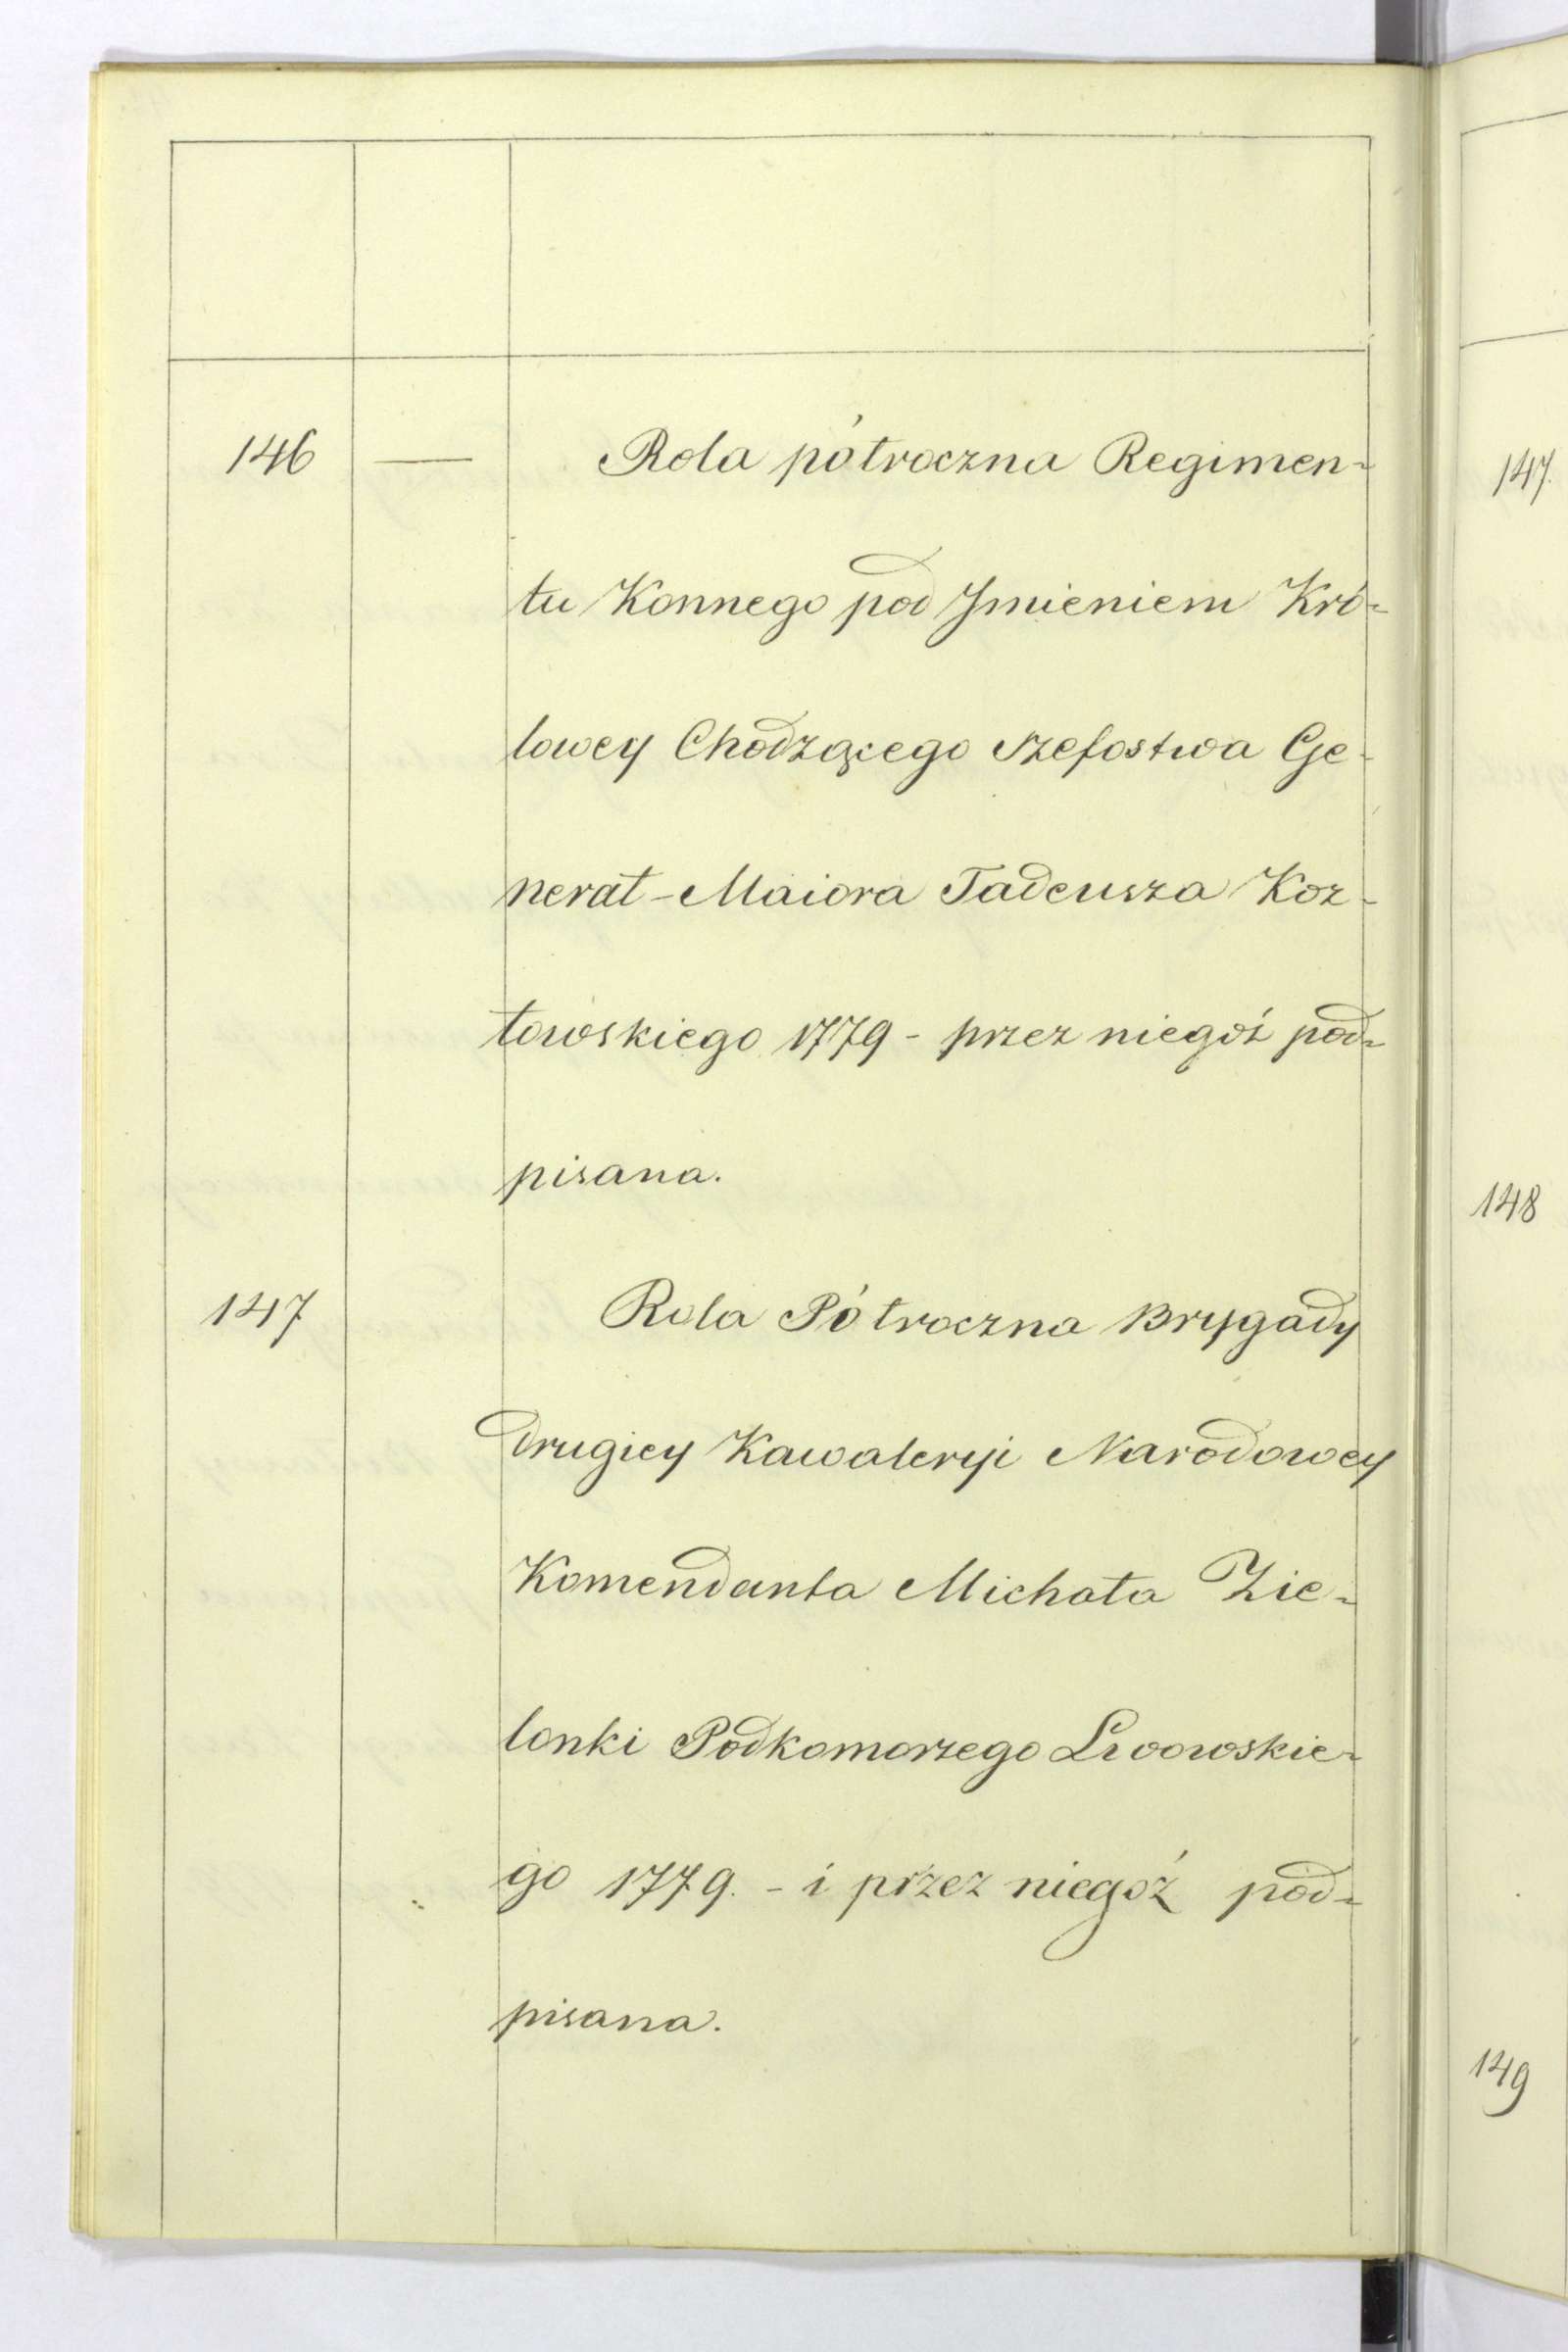 146 — Rola półroczna Regimen-
tu Konnego pod Jmieniem Kró-
lowey Chodzącego szefostwa Ge-
nerał-Maiora Tadeusza Koz-
łowskiego 1779 - przez niegoż pod-
pisana.
147 Rola Półroczna Brygady
drugiey Kawaleryi Narodowey
Komendanta Michała Zie-
lonki Podkomorzego Lwowskie-
go 1779. - i przez niegoż pod-
pisana.
147.
148
149